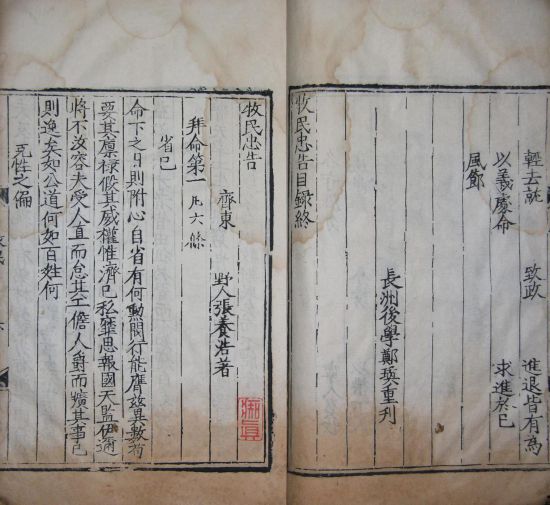 輕去就 致政 進退皆有為
以義處命 求進於己
風節
長洲後學鄭瑛重刋
牧民忠告目録終
牧民忠告
齊東 野人張養浩著
拜命第一 凡六條
省己
命下之日則附心自省有何勲閥行能膺玆異數苟
要其廩祿假其威權惟濟己私靡思報國天監伊邇
將不汝容夫受人直而怠其工儋人爵而曠其事己
則逸矣如公道何如百姓何
克性之偏